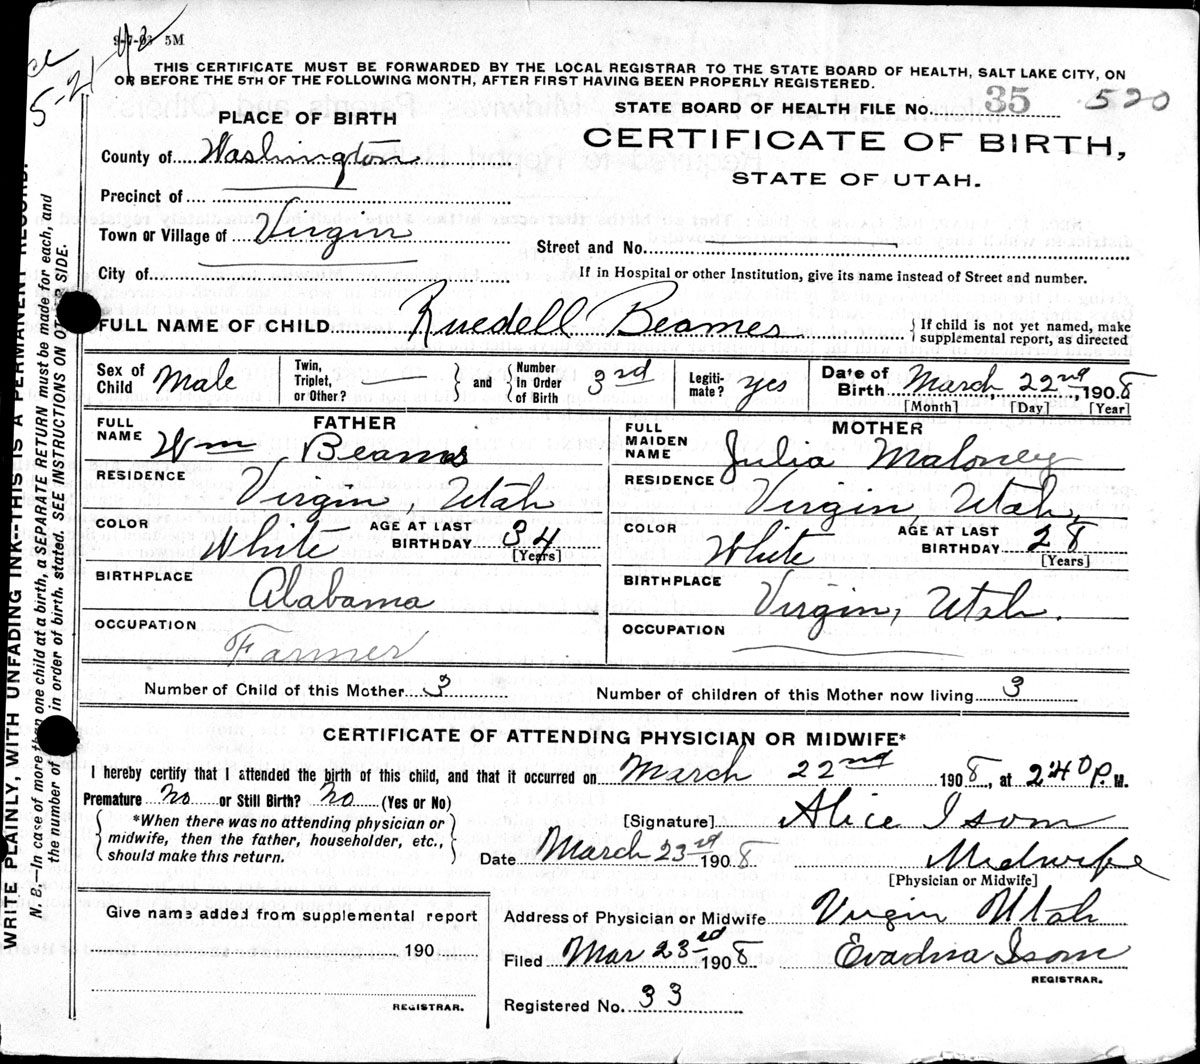 9-7-03 5M
5-21
THIS CERTIFICATE MUST BE FORWARDED BY THE LOCAL REGISTRAR TO THE STATE BOARD OF HEALTH, SALT LAKE CITY, ON
OR BEFORE THE 5TH OF THE FOLLOWING MONTH, AFTER FIRST HAVING BEEN PROPERLY REGISTERED.
STATE BOARD OF HEALTH FILE NO. 35 520
PLACE OF BIRTH
CERTIFICATE OF BIRTH,
STATE OF UTAH.
County of Washington
Precinct of
Town or Village of Virgin
Street and No.
City of
If in Hospital or other Institution, give its name instead of Street and number.
FULL NAME OF CHILD Ruedell Beames
If child is not yet named, make
supplemental report, as directed
Sex of Child Male
Twin, Triplet, or Other? and Number in Order of Birth 3rd
Legitimate? yes
Date of Birth March, 22nd, 1908
[Month] [Day] [Year]
FATHER
FULL NAME Wm Beams
RESIDENCE Virgin, Utah
COLOR White AGE AT LAST BIRTHDAY 34 [Years]
BIRTHPLACE Alabama
OCCUPATION Farmer
MOTHER
FULL MAIDEN NAME Julia Maloney
RESIDENCE Virgin, Utah,
COLOR White AGE AT LAST BIRTHDAY 28 [Years]
BIRTHPLACE Virgin, Utah.
OCCUPATION
Number of Child of this Mother 3
Number of children of this Mother now living 3
CERTIFICATE OF ATTENDING PHYSICIAN OR MIDWIFE*
I hereby certify that I attended the birth of this child, and that it occurred on March 22nd 1908, at 240 P. M.
Premature no or Still Birth? no (Yes or No)
*When there was no attending physician or
midwife, then the father, householder, etc.,
should make this return.
[Signature] Alice Isom
Date March 23rd 1908
Midwife
[Physician or Midwife]
Give name added from supplemental report
190
REGISTRAR.
Address of Physician or Midwife Virgin Utah
Filed Mar 23rd 1908 Evadna Isom
REGISTRAR.
Registered No. 33
WRITE PLAINLY, WITH UNFADING INK--THIS IS A PERMANENT RECORD.
N. B.—In case of more than one child at a birth, a SEPARATE RETURN must be made for each, and
the number of in order of birth, stated. SEE INSTRUCTIONS ON OTHER SIDE.